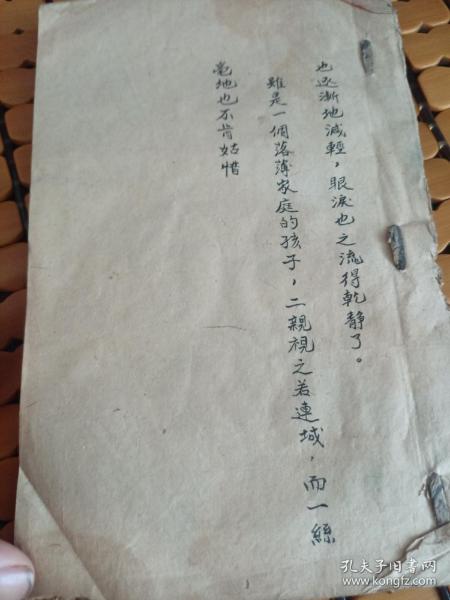 也逐漸地減輕，眼淚也之流得乾靜了。
雖是一個落薄家庭的孩子，二親視之若連城，而一絲
毫地也不肯姑惜
孔夫子旧书网
www.kongfz.com